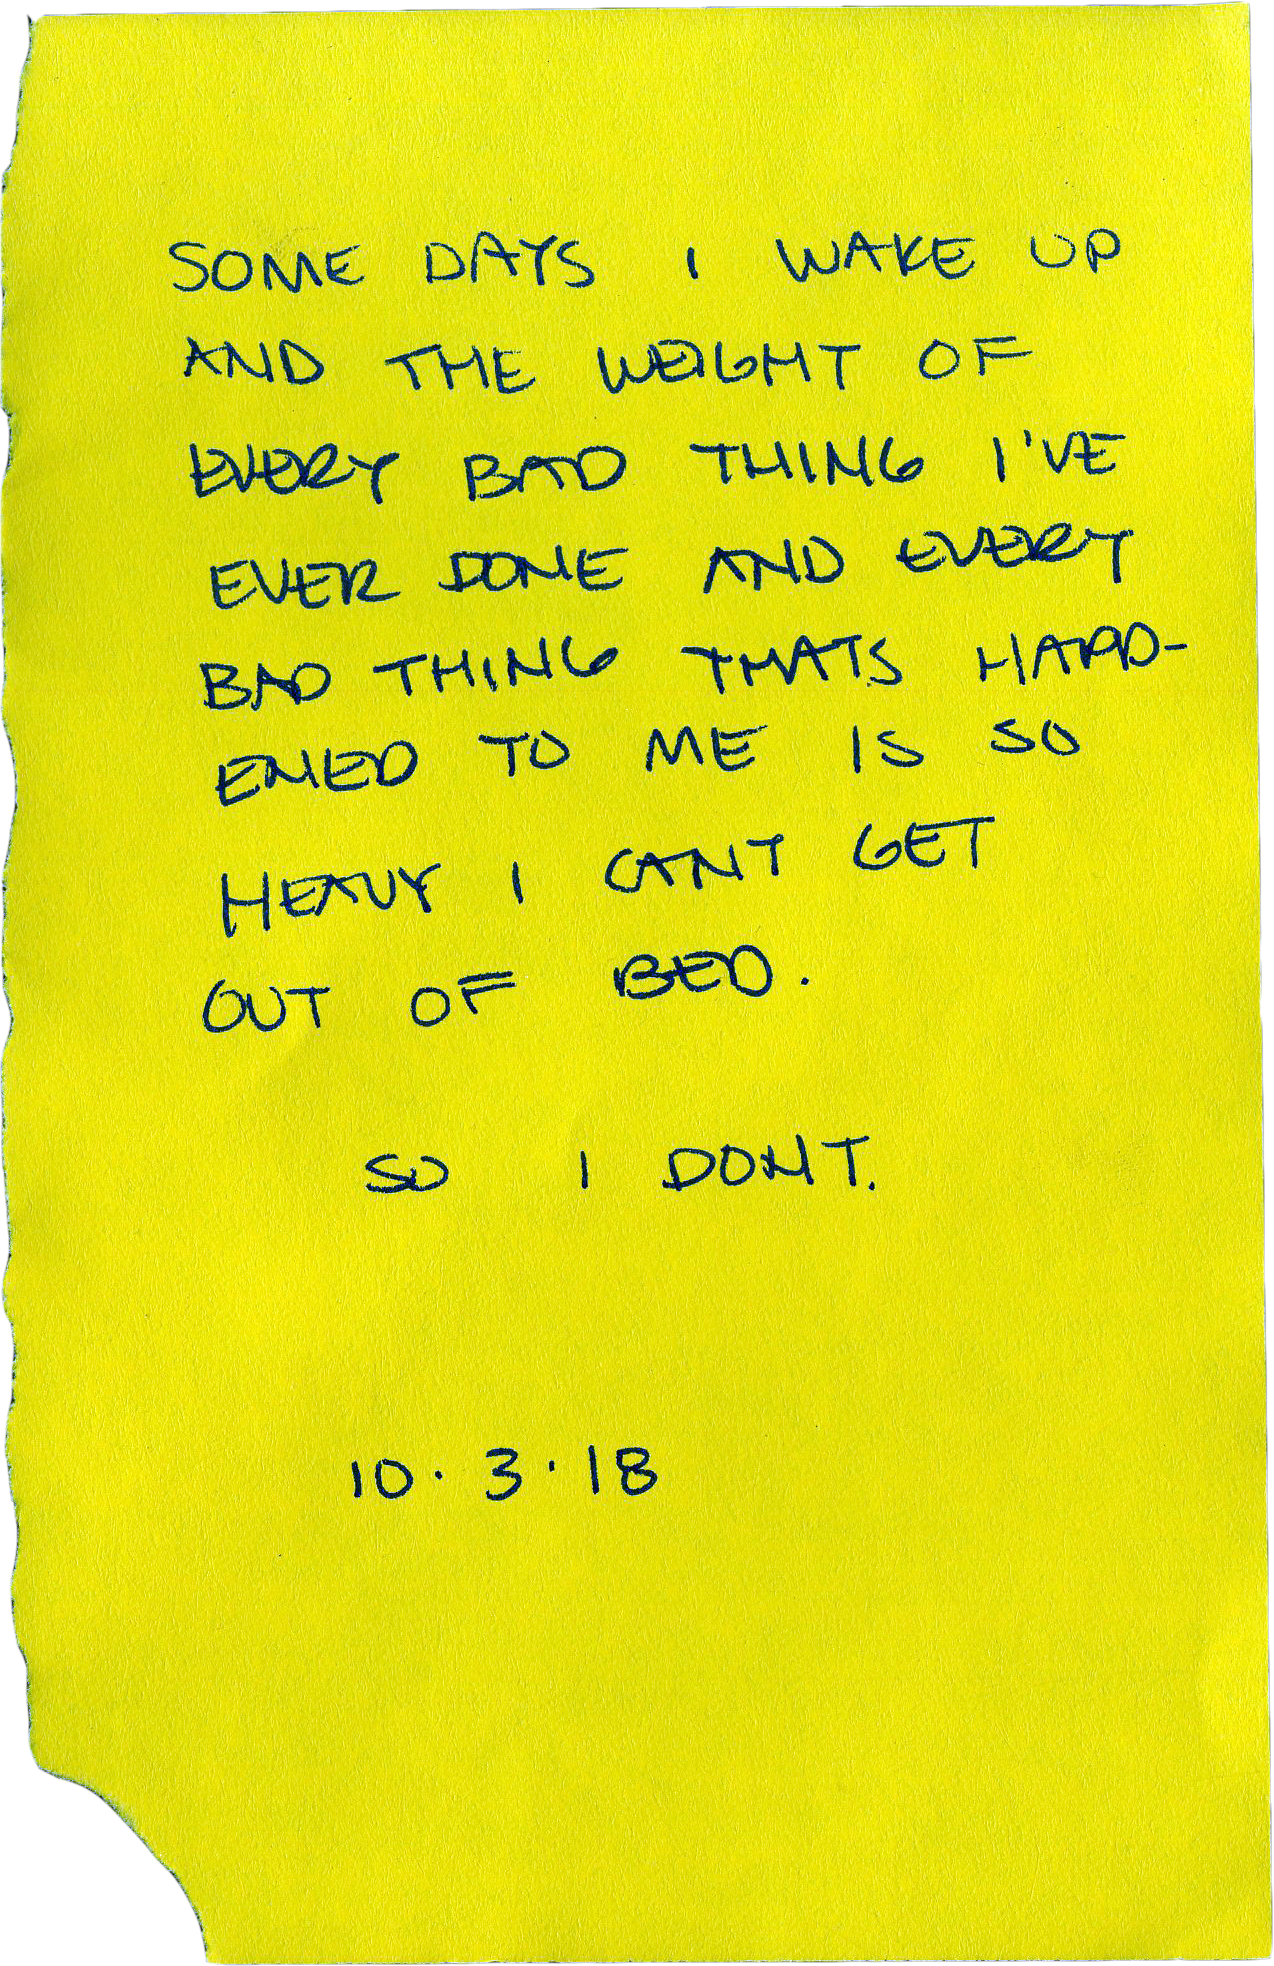 SOME DAYS I WAKE UP
AND THE WEIGHT OF
EVERY BAD THING I'VE
EVER DONE AND EVERY
BAD THING THATS HAPP-
ENED TO ME IS SO
HEAVY I CANT GET
OUT OF BED.
SO I DONT.
10.3.18